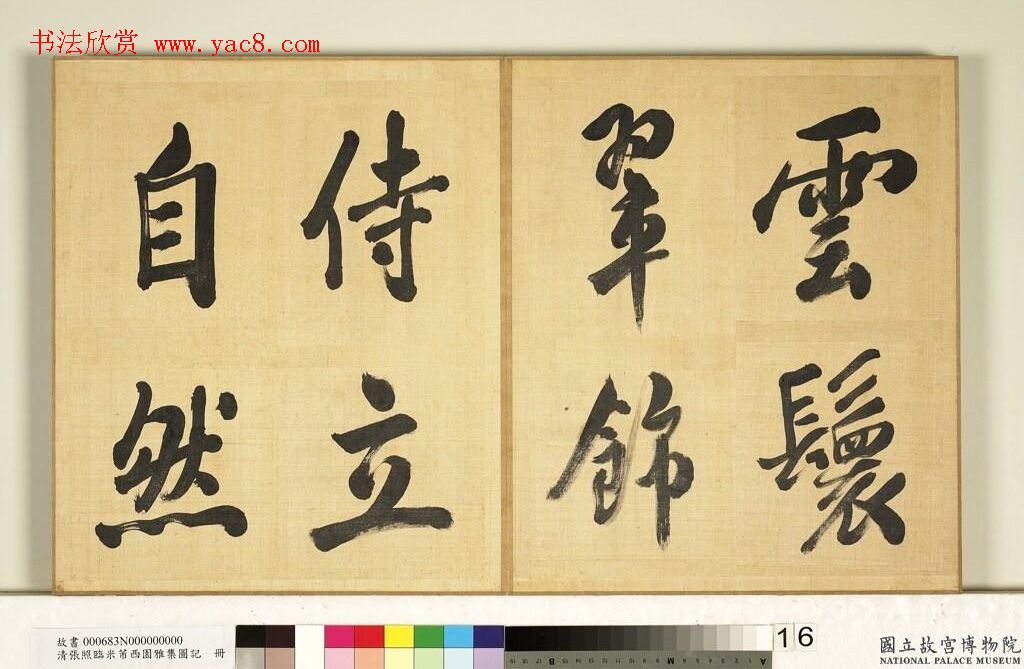 书法欣赏 www.yac8.com
雲鬟
翠飾
侍立
自然
故書 000683N000000000
清張照臨米芾西園雅集圖記 冊
16
國立故宮博物院
NATIONAL PALACE MUSEUM